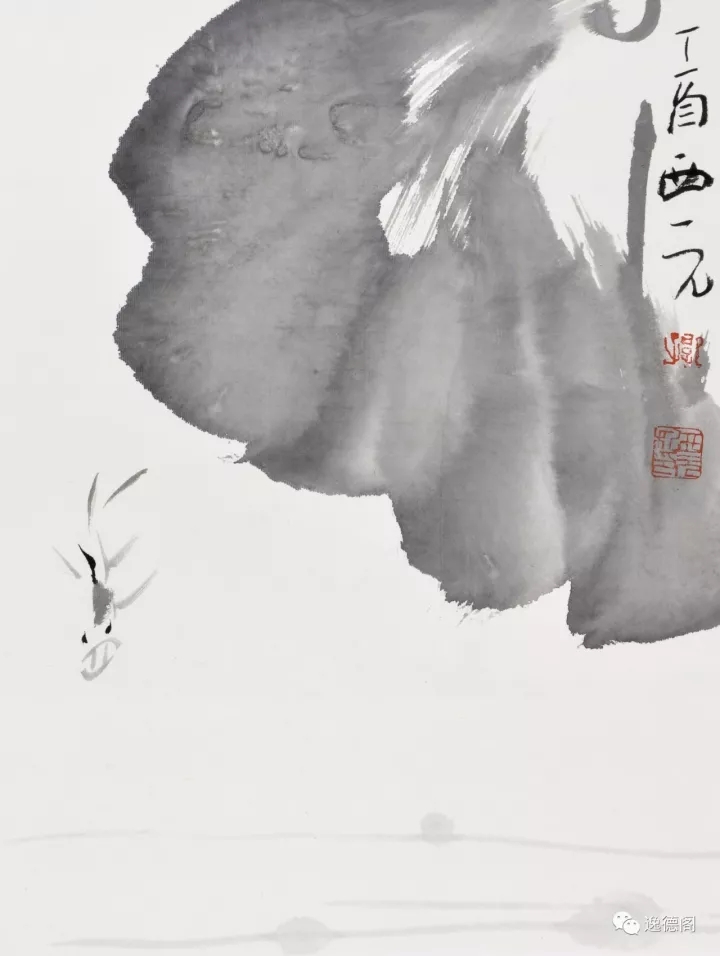 丁酉西元
逸德阁